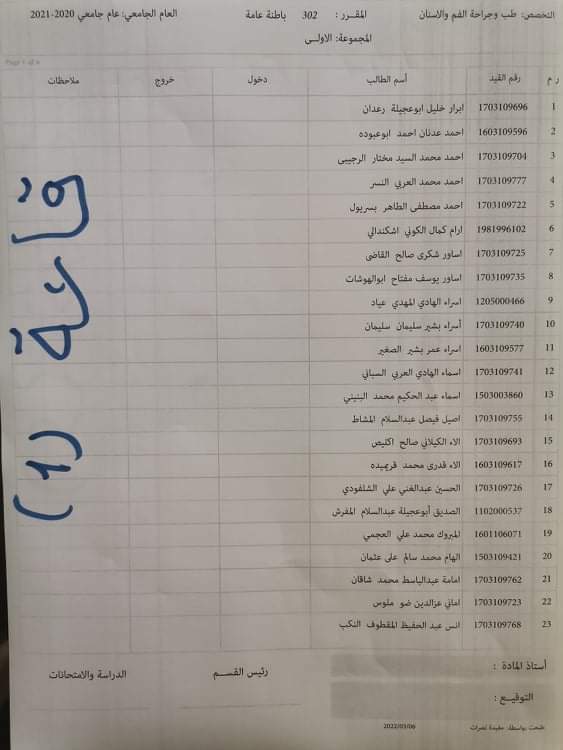 التخصص: طب وجراحة الفم والاسنان المقرر : 302 باطنة عامة العام الجامعي: عام جامعي 2020-2021
المجموعة: الاولى
Page 1 of 6
ر م رقم القيد أسم الطالب دخول خروج ملاحظات
1 1703109696 ابرار خليل ابوعجيلة رعدان
2 1603109596 احمد عدنان احمد ابوعبوده
3 1703109704 احمد محمد السيد مختار الرجيبى
4 1703109777 احمد محمد العربي النسر
5 1703109722 احمد مصطفى الطاهر بسريول
6 1981996102 ارام كمال الكوني اشكندالي
7 1703109725 اساور شكرى صالح القاضى
8 1703109735 اساور يوسف مفتاح ابوالهوشات
9 1205000466 اسراء الهادي المهدي عياد
10 1703109740 أسراء بشير سليمان سليمان
11 1603109577 اسراء عمر بشير الصغير
12 1703109741 اسماء الهادي العربي السباني
13 1503003860 اسماء عبد الحكيم محمد البنيني
14 1703109755 اصيل فيصل عبدالسلام المشاط
15 1703109693 الاء الكيلاني صالح اكليص
16 1603109617 الاء قدرى محمد قريميده
17 1703109726 الحسين عبدالغني علي الشلفودي
18 1102000537 الصديق أبوعجيلة عبدالسلام المفرش
19 1601106071 المبروك محمد علي العجمي
20 1503109421 الهام محمد سالم على عثمان
21 1703109762 امامة عبدالباسط محمد شاقان
22 1703109723 اماني عزالدين ضو ملوس
23 1703109768 انس عبد الحفيظ المقطوف النكب
(1)
أستاذ المادة : رئيس القسـم الدراسة والامتحانات
التوقيـع :
طبعت بواسطة: مفيدة نصرات 2022/03/06